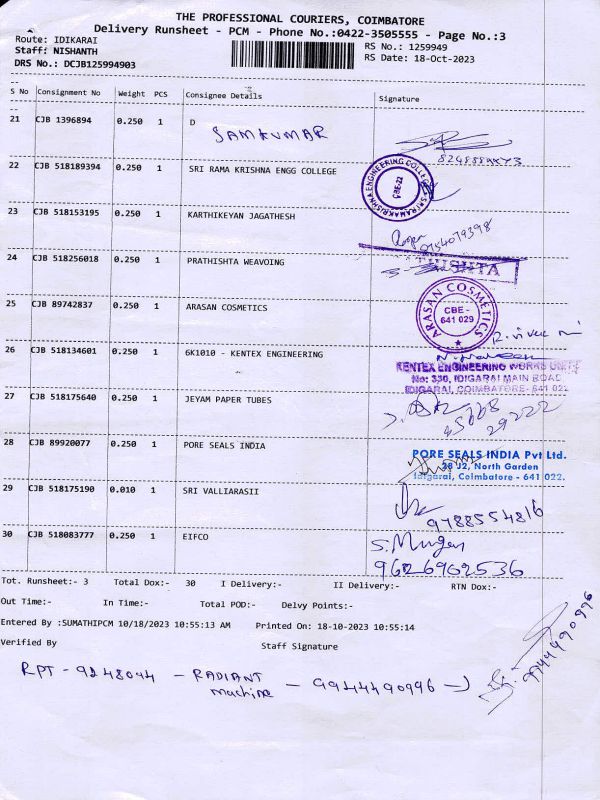 THE PROFESSIONAL COURIERS, COIMBATORE
Delivery Runsheet - PCM - Phone No.:0422-3505555 - Page No.:3
Route: IDIKARAI
RS No.: 1259949
Staff: NISHANTH
RS Date: 18-Oct-2023
DRS No.: DCJB125994903
S No Consignment No Weight PCS Consignee Details Signature
21 CJB 1396894 0.250 1 D
SAMKUMAR
22 CJB 518189394 0.250 1 SRI RAMA KRISHNA ENGG COLLEGE
SRI RAMAKRISHNA ENGINEERING COLLEGE
CBE-22
23 CJB 518153195 0.250 1 KARTHIKEYAN JAGATHESH
9754079398
24 CJB 518256018 0.250 1 PRATHISHTA WEAVOING
THISHTA
25 CJB 89742837 0.250 1 ARASAN COSMETICS
ARASAN COSMETICS
CBE -
641 029
26 CJB 518134601 0.250 1 6K1010 - KENTEX ENGINEERING
KENTEX ENGINEERING WORKS UNIT
No: 330, IDIGARAI MAIN ROAD
IDIGARAI, COIMBATORE- 641 022
27 CJB 518175640 0.250 1 JEYAM PAPER TUBES
28 CJB 89920077 0.250 1 PORE SEALS INDIA
PORE SEALS INDIA Pvt Ltd.
J2, North Garden
Idigarai, Coimbatore - 641 022.
29 CJB 518175190 0.010 1 SRI VALLIARASII
9788554816
30 CJB 518083777 0.250 1 EIFCO
S. Murugan
9626902536
Tot. Runsheet:- 3 Total Dox:- 30 I Delivery:- II Delivery:- RTN Dox:-
Out Time:- In Time:- Total POD:- Delvy Points:-
Entered By :SUMATHIPCM 10/18/2023 10:55:13 AM Printed On: 18-10-2023 10:55:14
Verified By Staff Signature
RPT - 9248044 - RADIANT
machine - 9944490996
9944490996